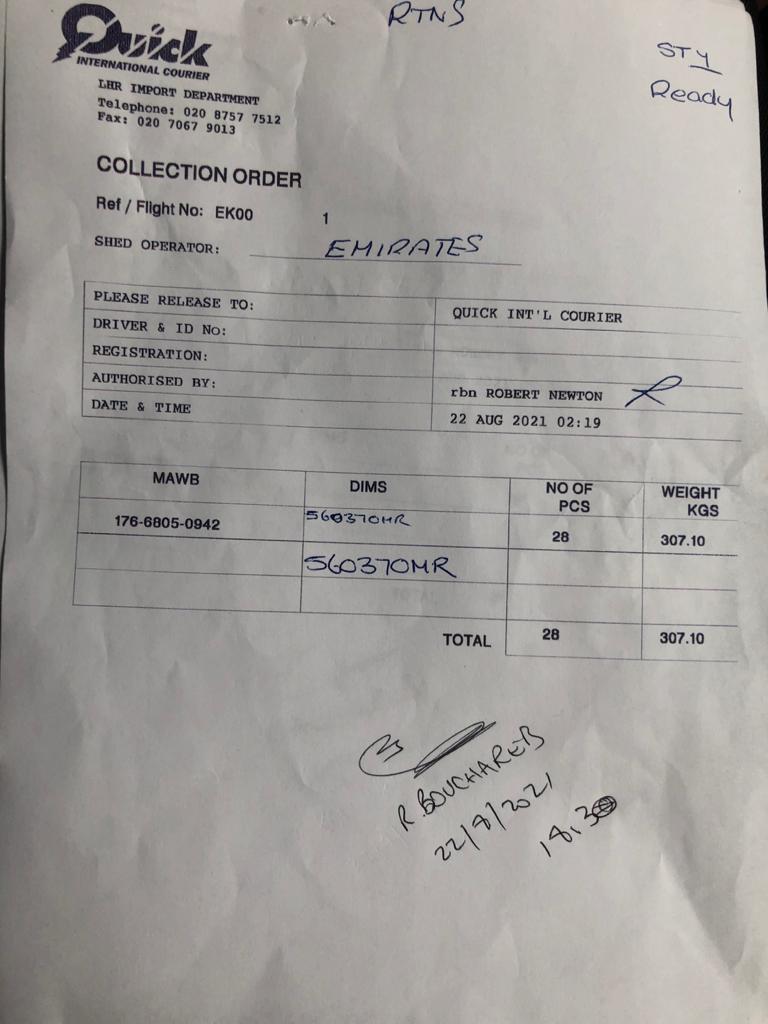 RTNS
STY
Ready
Quick
INTERNATIONAL COURIER
LHR IMPORT DEPARTMENT
Telephone: 020 8757 7512
Fax: 020 7067 9013
COLLECTION ORDER
Ref / Flight No: EK00 1
SHED OPERATOR: EMIRATES
PLEASE RELEASE TO: QUICK INT'L COURIER
DRIVER & ID No:
REGISTRATION:
AUTHORISED BY: rbn ROBERT NEWTON
DATE & TIME 22 AUG 2021 02:19
MAWB DIMS NO OF PCS WEIGHT KGS
176-6805-0942 560370MR 28 307.10
560370MR
TOTAL 28 307.10
R. BOUCHAREB
22/8/2021
18.30